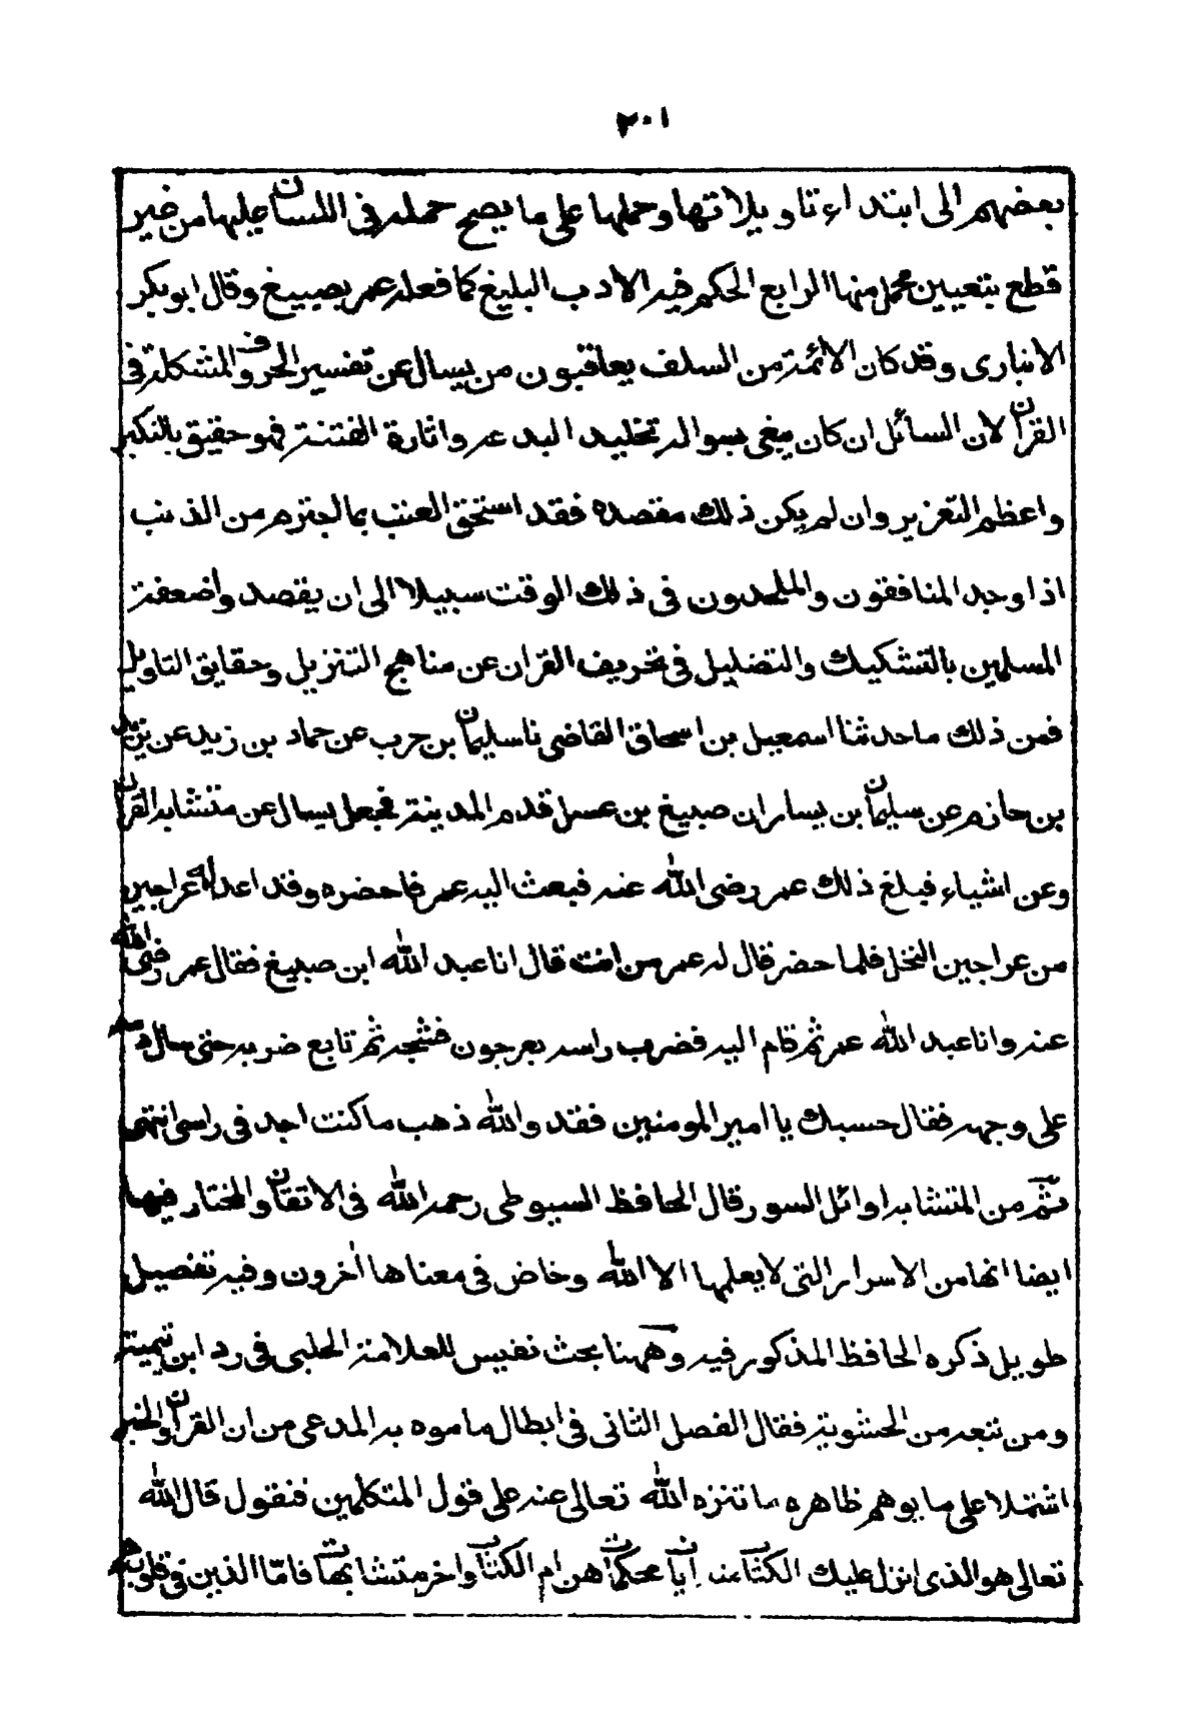 ٢٠١
بعضهم الى ابتداء تاويلاتها وحملها على ما يصح حمله فى اللسان عليها من غير
قطع بتعيين محمل منها الرابع الحكم فيه الادب البليغ كما فعله عمر بصبيغ وقال ابو بكر
الانبارى وقد كان الائمة من السلف يعاقبون من يسال عن تفسير الحروف المشكلة فى
القران لان السائل ان كان يبغى بسواله تخليد البدعه واثارة الفتنة فهو حقيق بالنكير
واعظم التعزير وان لم يكن ذلك مقصده فقد استحق العتب بما اجترم من الذنب
اذا وجد المنافقون والملحدون فى ذلك الوقت سبيلا الى ان يقصد واضعفة
المسلمين بالتشكيك والتضليل فى تحريف القران عن مناهج التنزيل وحقايق التاويل
فمن ذلك ما حدثنا اسمعيل بن اسحاق القاضى نا سليمان بن حرب عن حماد بن زيد عن يزيد
بن حازم عن سليمان بن يسار ان صبيغ بن عسل قدم المدينة فجعل يسال عن متشابه القران
وعن اشياء فبلغ ذلك عمر رضى الله عنه فبعث اليه عمر فاحضره وقد اعد له عراجين
من عراجين النخل فلما حضر قال له عمر من انت قال انا عبد الله ابن صبيغ فقال عمر رضى الله
عنه وانا عبد الله عمر ثم قام اليه فضرب راسه بعرجون فشجه ثم تابع ضربه حتى سال دمه
على وجهه فقال حسبك يا امير المومنين فقد والله ذهب ما كنت اجد فى راسى انتهى
ثم من المتشابه اوائل السور قال الحافظ السيوطى رحمه الله فى الاتقان والمختار فيها
ايضا انها من الاسرار التى لا يعلمها الا الله وخاض فى معناها اخرون وفيه تفصيل
طويل ذكره الحافظ المذكور فيه وههنا بحث نفيس للعلامة الحلبى فى رد ابن تيمية
ومن تبعه من الحشوية فقال الفصل الثانى فى ابطال ما موه به المدعى من ان القران والخبر
اشتملا على ما يوهم ظاهره ما تنزه الله تعالى عنه على قول المتكلمين فنقول قال الله
تعالى هو الذى انزل عليك الكتاب منه ايات محكمات هن ام الكتاب واخر متشابهات فامّا الذين فى قلوبهم